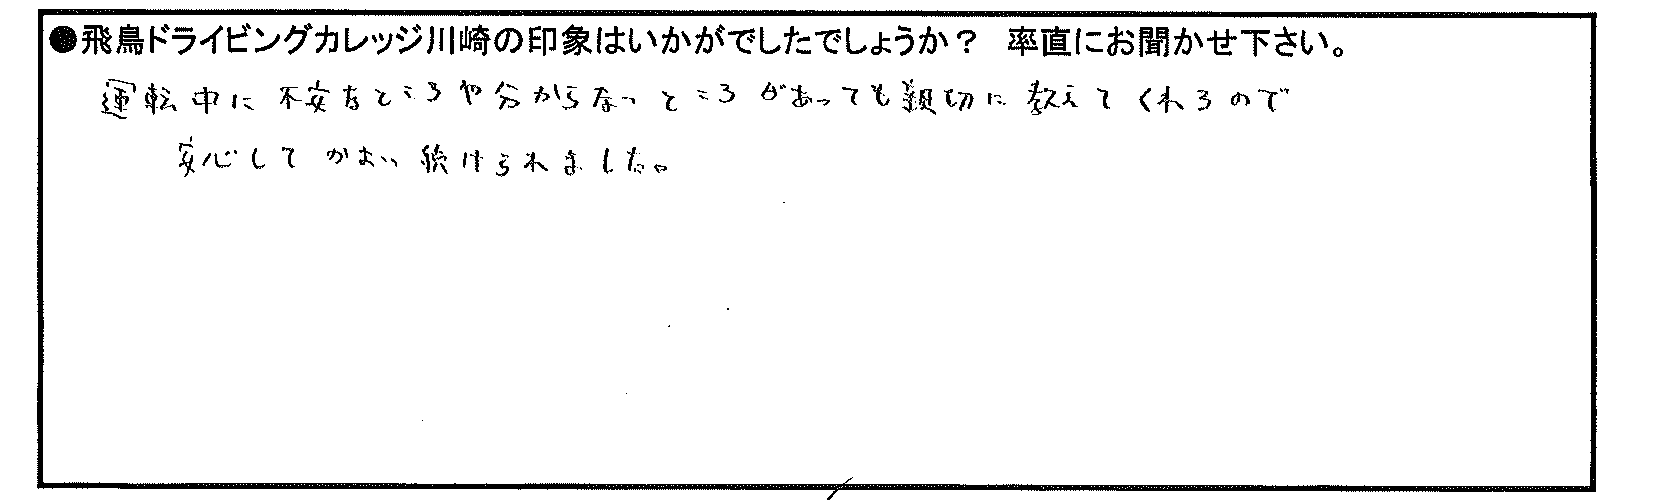 ●飛鳥ドライビングカレッジ川崎の印象はいかがでしたでしょうか？ 率直にお聞かせ下さい。
運転中に不安なところや分からないところがあっても親切に教えてくれるので
安心してかよい続けられました。